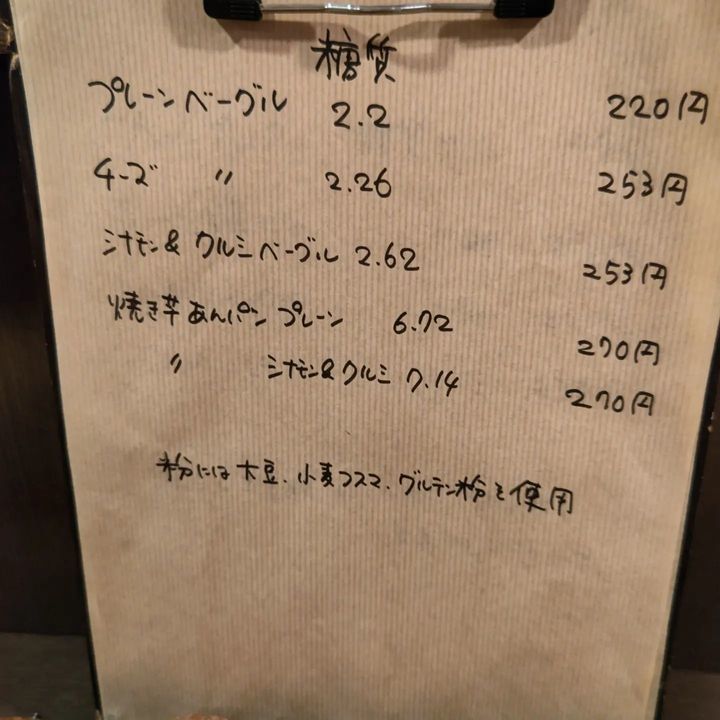 糖質
プレーンベーグル 2.2 220円
チーズ 〃 2.26 253円
シナモン&クルミベーグル 2.62 253円
焼き芋あんパン プレーン 6.72 270円
〃 シナモン&クルミ 7.14 270円
粉には大豆、小麦フスマ、グルテン粉を使用